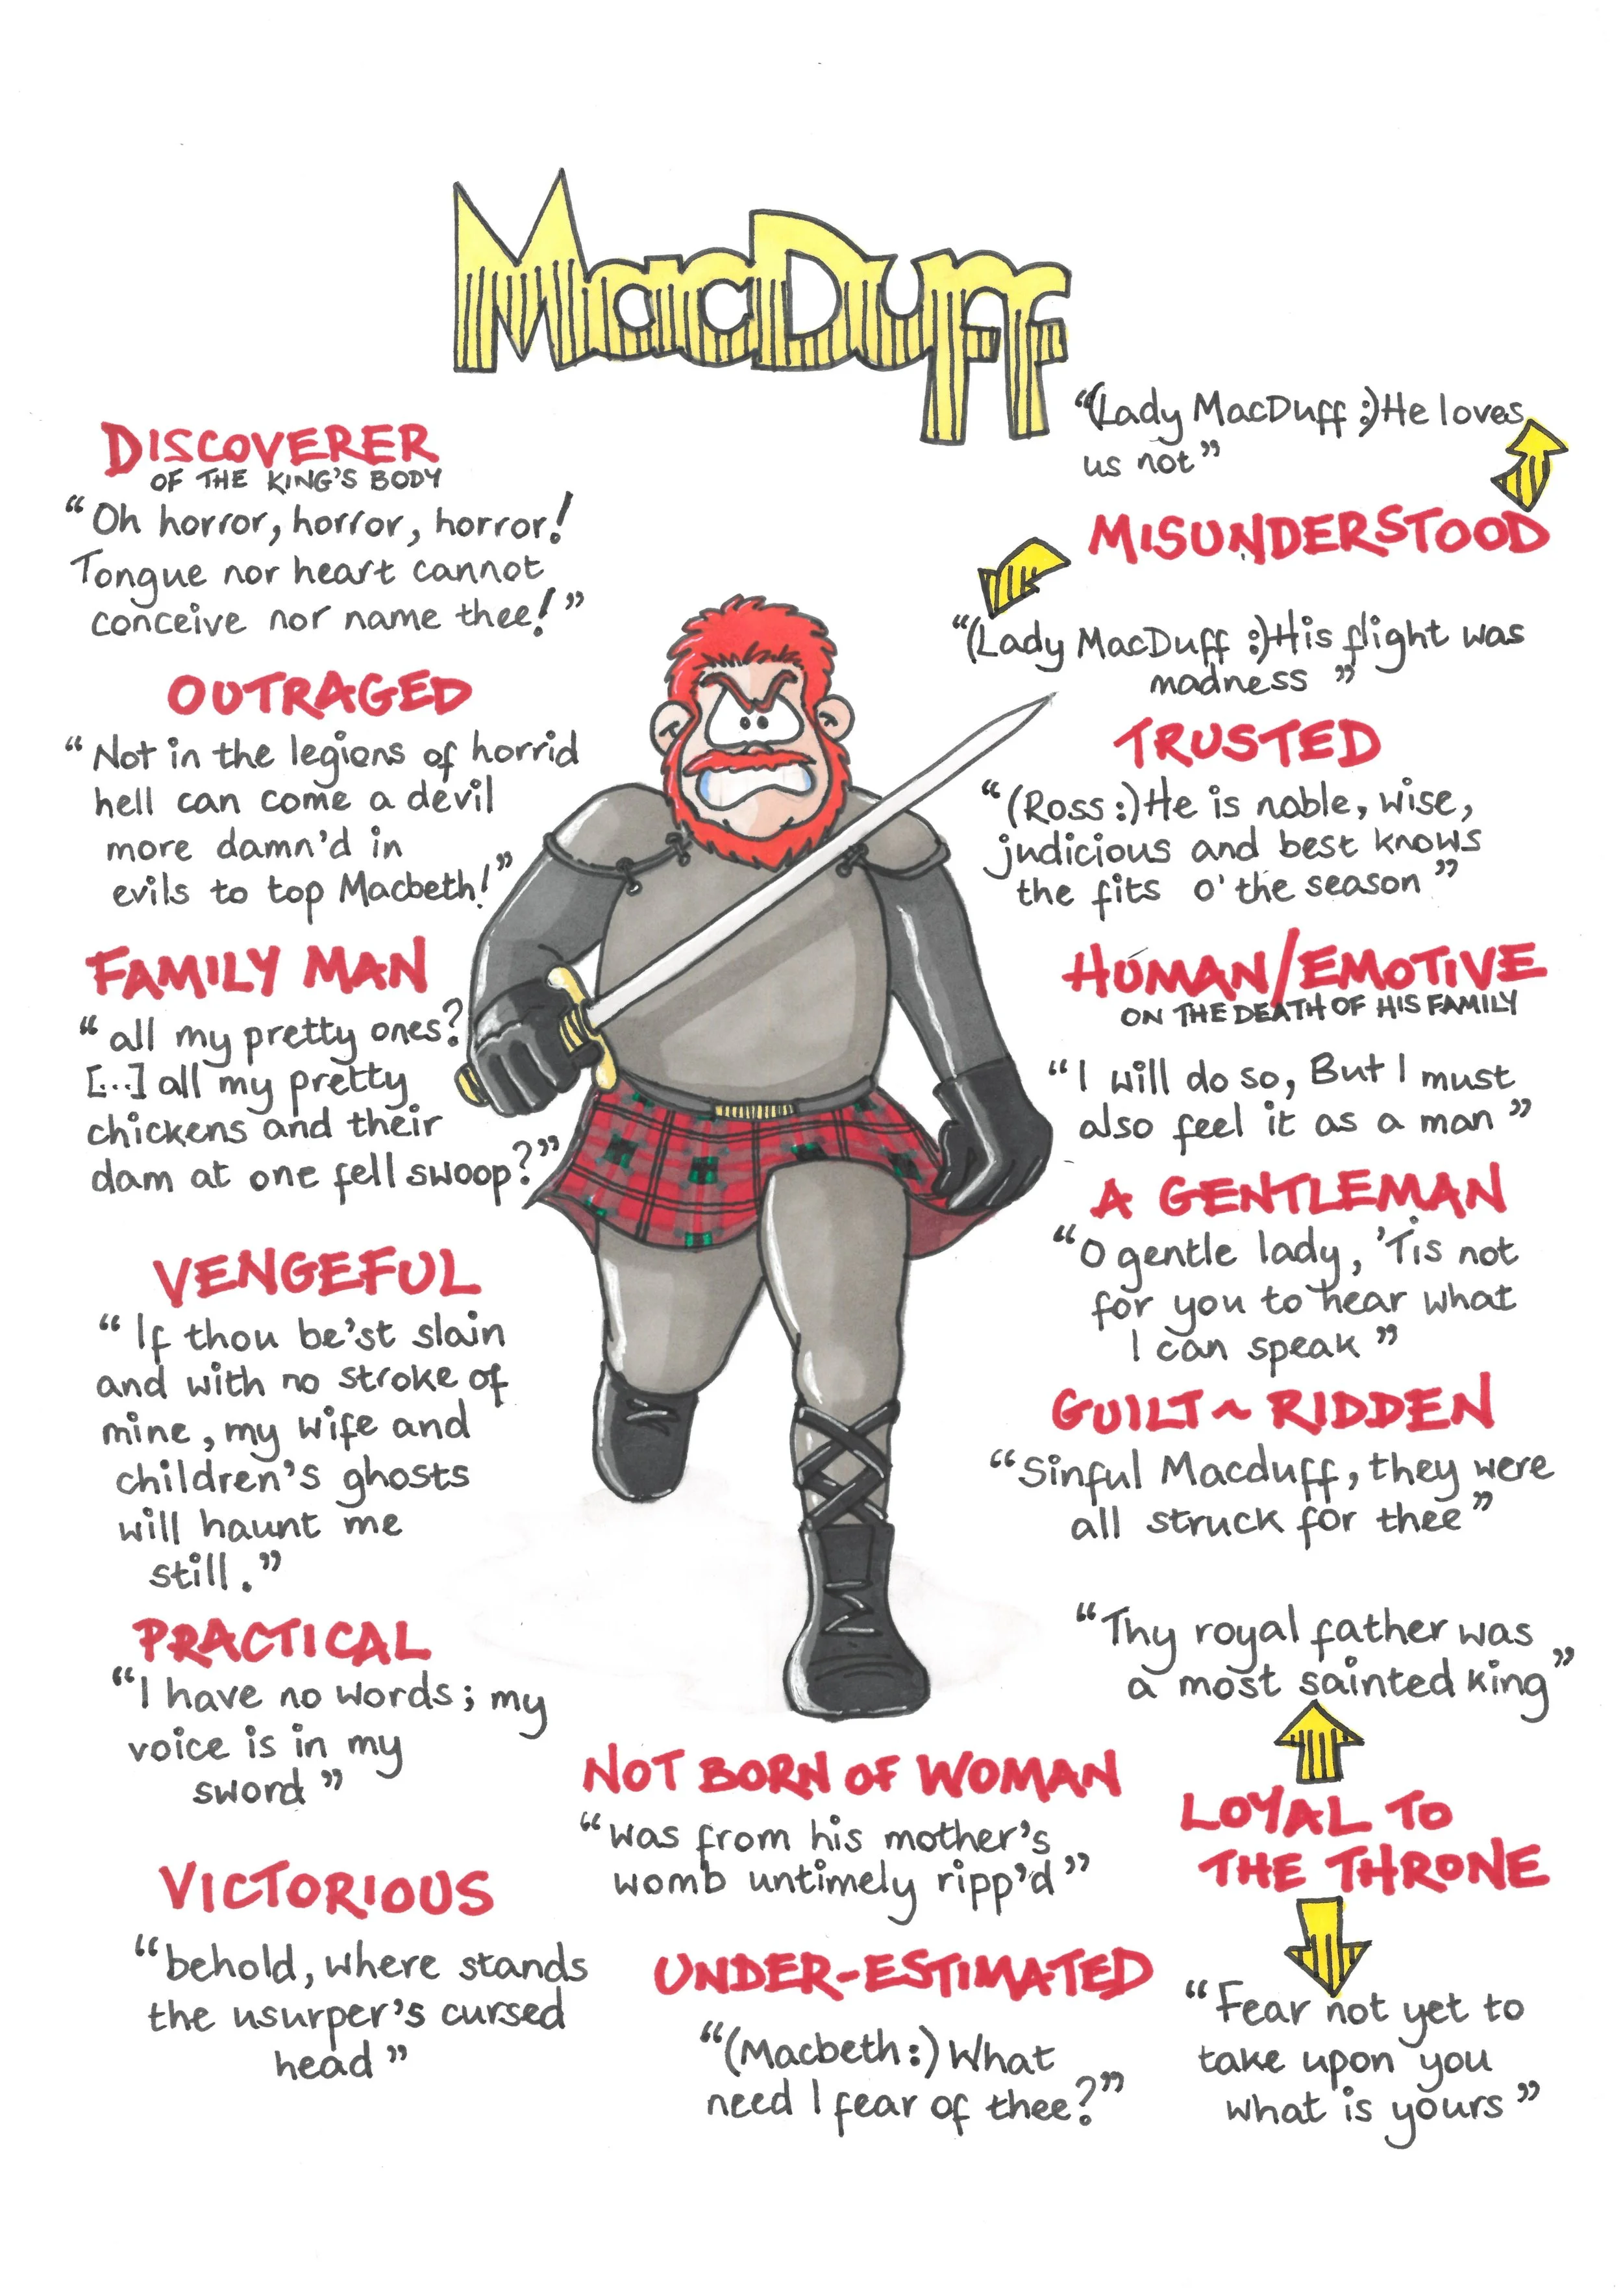 MacDuff
DISCOVERER
OF THE KING'S BODY
"Oh horror, horror, horror!
Tongue nor heart cannot
conceive nor name thee!"
OUTRAGED
"Not in the legions of horrid
hell can come a devil
more damn'd in
evils to top Macbeth!"
FAMILY MAN
"all my pretty ones?
[...] all my pretty
chickens and their
dam at one fell swoop?"
VENGEFUL
"If thou be'st slain
and with no stroke of
mine, my wife and
children's ghosts
will haunt me
still."
PRACTICAL
"I have no words; my
voice is in my
sword"
VICTORIOUS
"behold, where stands
the usurper's cursed
head"
NOT BORN OF WOMAN
"was from his mother's
womb untimely ripp'd"
UNDER-ESTIMATED
"(Macbeth:) What
need I fear of thee?"
"(Lady MacDuff:) He loves
us not"
MISUNDERSTOOD
"(Lady MacDuff:) His flight was
madness"
TRUSTED
"(Ross:) He is noble, wise,
judicious and best knows
the fits o' the season"
HUMAN/EMOTIVE
ON THE DEATH OF HIS FAMILY
"I will do so, But I must
also feel it as a man"
A GENTLEMAN
"O gentle lady, 'Tis not
for you to hear what
I can speak"
GUILT~RIDDEN
"Sinful Macduff, they were
all struck for thee"
"Thy royal father was
a most sainted king"
LOYAL TO
THE THRONE
"Fear not yet to
take upon you
what is yours"